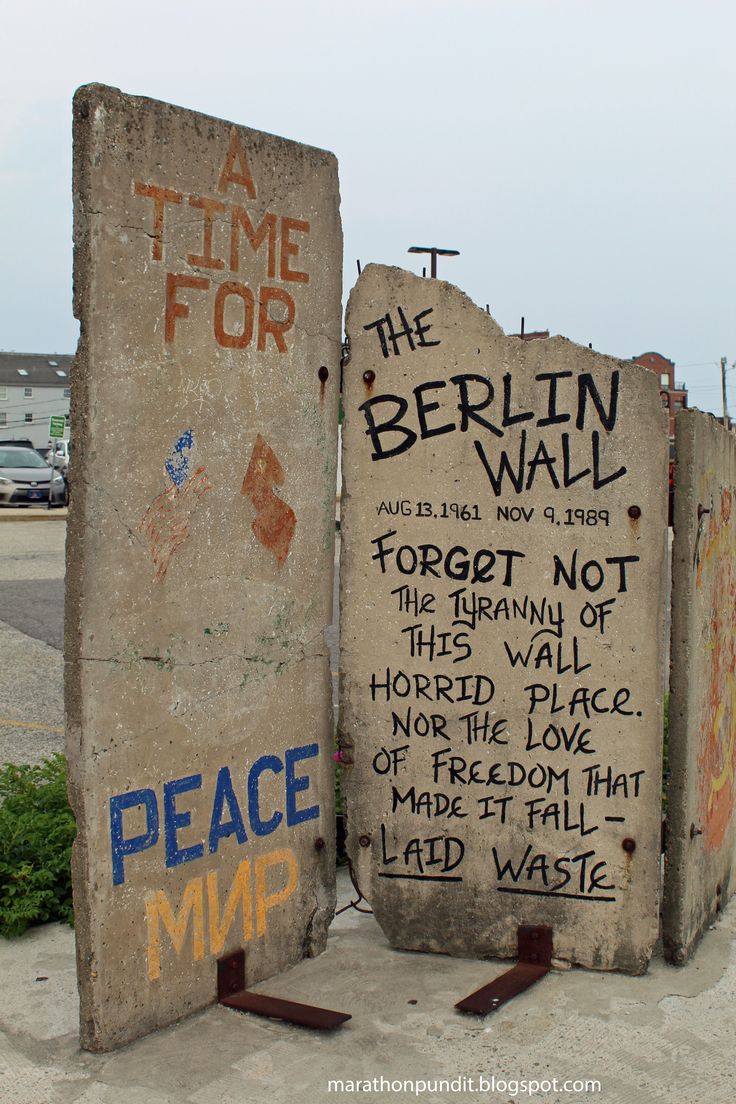 A
TIME
FOR
PEACE
МИР
THE
BERLIN
WALL
AUG 13.1961 NOV 9.1989
FORGET NOT
THE TYRANNY OF
THIS WALL
HORRID PLACE.
NOR THE LOVE
OF FREEDOM THAT
MADE IT FALL –
LAID WASTE
marathonpundit.blogspot.com